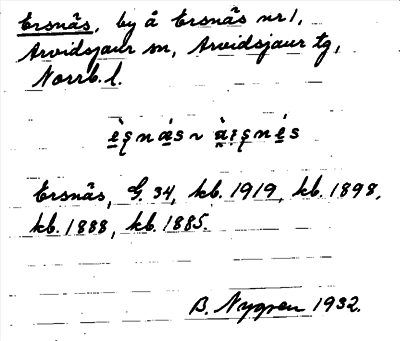 Ersnäs, by å Ersnäs nr 1,
Arvidsjaur sn, Arvidsjaur tg,
Norrb. l.
Ersnäs, G. 34, kb. 1919, kb. 1898,
kb. 1888, kb. 1885.
B. Nygren 1932.